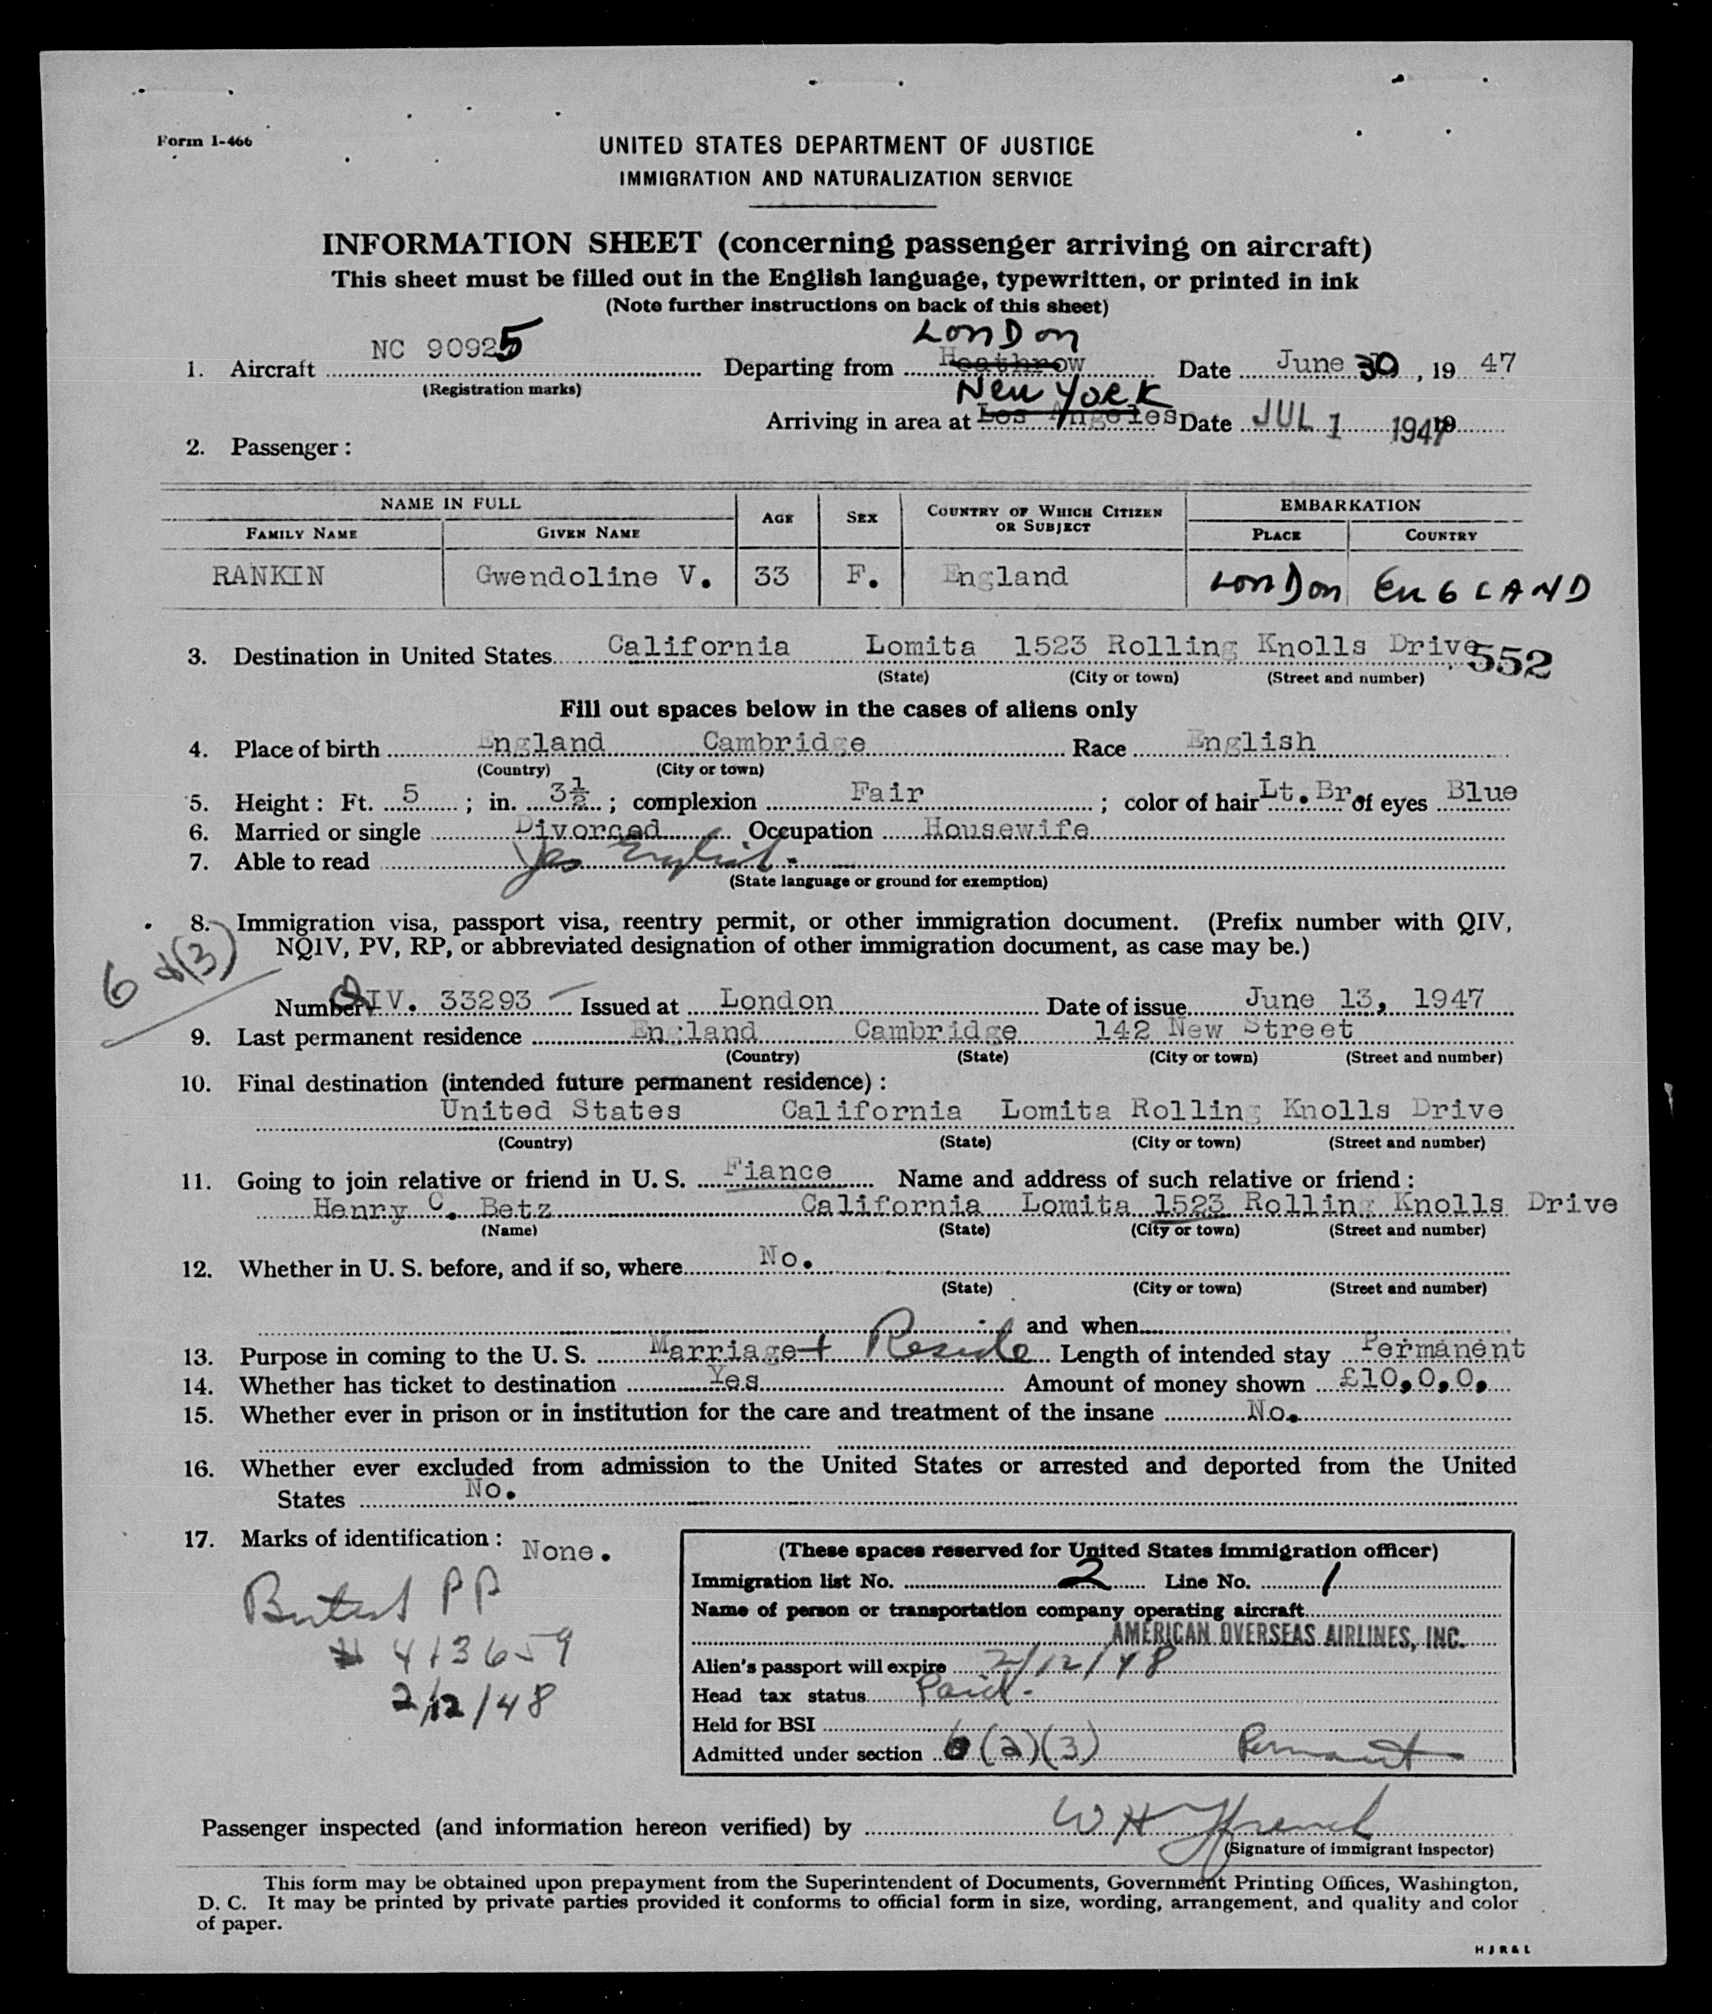 Form I-466
UNITED STATES DEPARTMENT OF JUSTICE
IMMIGRATION AND NATURALIZATION SERVICE
INFORMATION SHEET (concerning passenger arriving on aircraft)
This sheet must be filled out in the English language, typewritten, or printed in ink
(Note further instructions on back of this sheet)
LonDon
1. Aircraft NC 90925 Departing from Heathrow Date June 30, 19 47
(Registration marks)
New York
Arriving in area at Los Angeles Date JUL 1 1947 19
2. Passenger:
NAME IN FULL AGE SEX COUNTRY OF WHICH CITIZEN OR SUBJECT EMBARKATION
FAMILY NAME GIVEN NAME PLACE COUNTRY
RANKIN Gwendoline V. 33 F. England LonDon EnGLAND
3. Destination in United States California Lomita 1523 Rolling Knolls Drive 552
(State) (City or town) (Street and number)
Fill out spaces below in the cases of aliens only
4. Place of birth England Cambridge Race English
(Country) (City or town)
5. Height: Ft. 5; in. 3½; complexion Fair; color of hair Lt. Br. of eyes Blue
6. Married or single Divorced Occupation Housewife
7. Able to read Yes English.
(State language or ground for exemption)
8. Immigration visa, passport visa, reentry permit, or other immigration document. (Prefix number with QIV,
NQIV, PV, RP, or abbreviated designation of other immigration document, as case may be.)
6 (3)
Number QIV. 33293 Issued at London Date of issue June 13, 1947
9. Last permanent residence England Cambridge 142 New Street
(Country) (State) (City or town) (Street and number)
10. Final destination (intended future permanent residence):
United States California Lomita Rolling Knolls Drive
(Country) (State) (City or town) (Street and number)
11. Going to join relative or friend in U. S. Fiance Name and address of such relative or friend:
Henry C. Betz California Lomita 1523 Rolling Knolls Drive
(Name) (State) (City or town) (Street and number)
12. Whether in U. S. before, and if so, where No.
(State) (City or town) (Street and number)
and when
13. Purpose in coming to the U. S. Marriage + Reside Length of intended stay Permanent
14. Whether has ticket to destination Yes Amount of money shown £10.0.0.
15. Whether ever in prison or in institution for the care and treatment of the insane No.
16. Whether ever excluded from admission to the United States or arrested and deported from the United
States No.
17. Marks of identification: None.
British PP
# 413659
2/12/48
(These spaces reserved for United States immigration officer)
Immigration list No. 2 Line No. 1
Name of person or transportation company operating aircraft
AMERICAN OVERSEAS AIRLINES, INC.
Alien's passport will expire 2/12/48
Head tax status Paid.
Held for BSI
Admitted under section 6(a)(3) Permanent
Passenger inspected (and information hereon verified) by W H French
(Signature of immigrant inspector)
This form may be obtained upon prepayment from the Superintendent of Documents, Government Printing Offices, Washington,
D. C. It may be printed by private parties provided it conforms to official form in size, wording, arrangement, and quality and color
of paper.
H J R & L